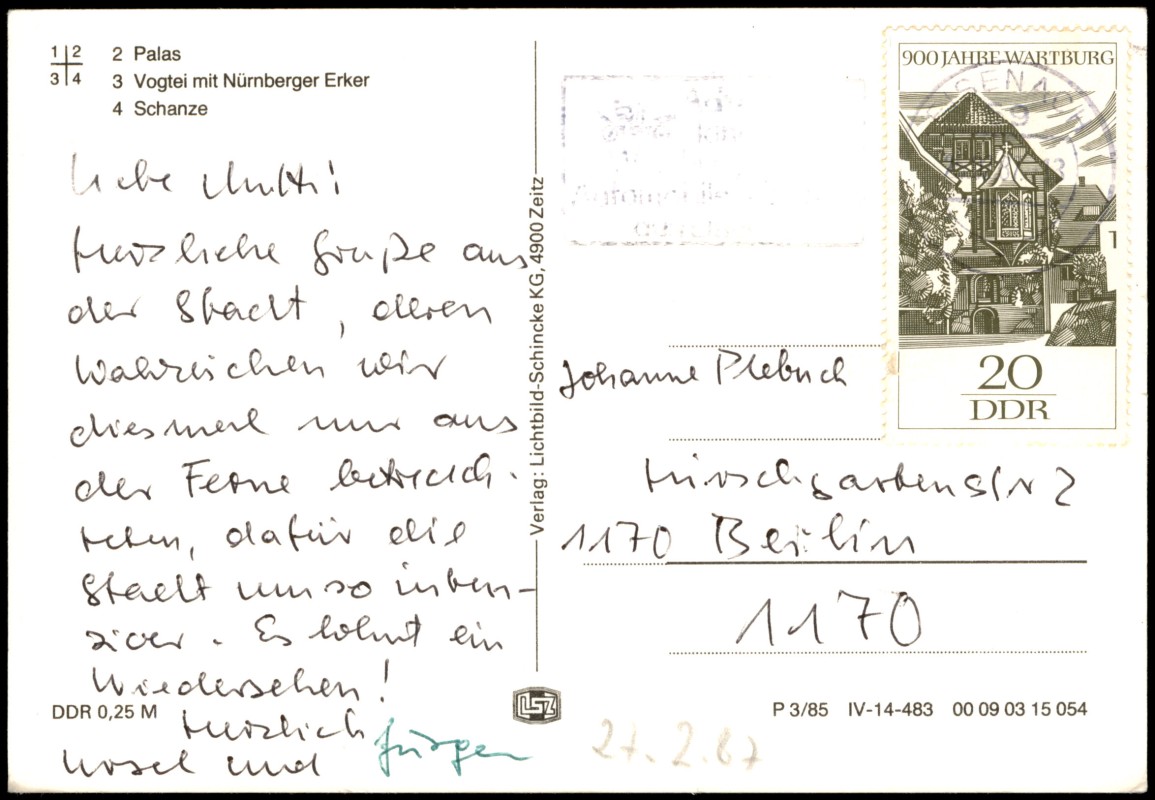 1 2
3 4
2 Palas
3 Vogtei mit Nürnberger Erker
4 Schanze
Liebe Mutti!
Herzliche Grüße aus
der Stadt, deren
Wahrzeichen wir
diesmal nur aus
der Ferne betrach-
teten, dafür die
Stadt um so inten-
siver. Es lohnt ein
Wiedersehen!
Herzlich
und Jürgen
DDR 0,25 M
Verlag: Lichtbild-Schincke KG, 4900 Zeitz
LSZ
900 JAHRE WARTBURG
20
DDR
EISENACH
Johanne Plebuch
Hirschgartenstr 2
1170 Berlin
1170
P 3/85 IV-14-483 00 09 03 15 054
27.2.87